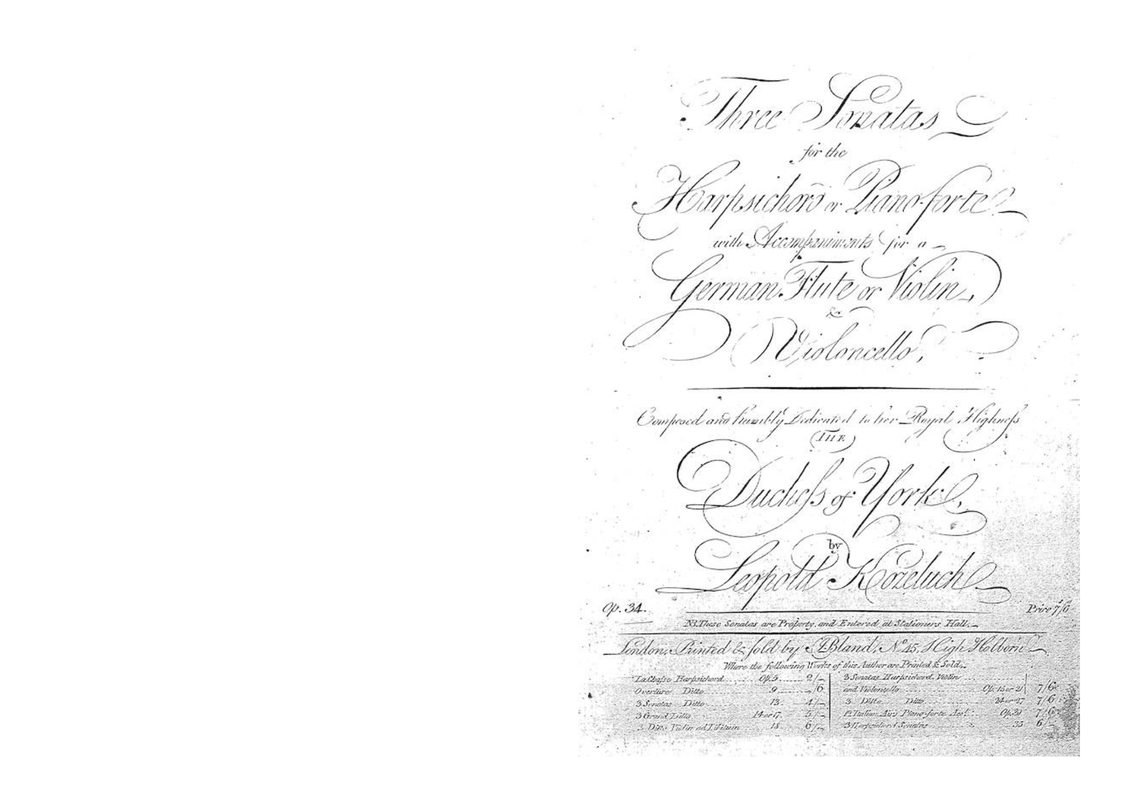 Three Sonatas
for the
Harpsichord or Piano-forte
with Accompaniments for a
German Flute or Violin,
&
Violoncello,
Composed and humbly Dedicated to her Royal Highness
THE
Duchess of York,
by
Leopold Kozeluch
Op. 34. Price 7/6
NB. These Sonatas are Property, and Entered at Stationers Hall.
London, Printed & sold by J. Bland, No. 45, High Holborn
Where the following Works of this Author are Printed & Sold.
La Chasse Harpsichord Op. 5 2/-
Overture Ditto 9 -/6
3 Sonatas Ditto 13 4/-
3 Grand Ditto 14 or 17 5/-
3 Ditto Violin ad Libitum 15 6/-
3 Sonatas Harpsichord Violin
and Violoncello Op. 15 or 21 7/6
3 Ditto Ditto 24 or 27 7/6
12 Italian Airs Piano-forte Op. 31 7/6
3 Harpsichord Sonatas 35 6/-